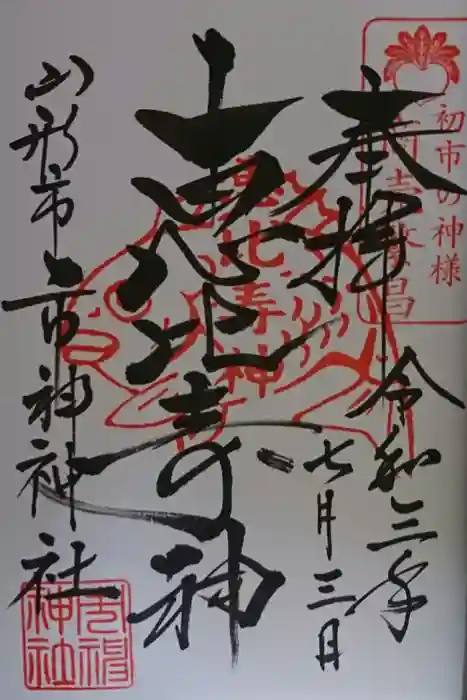 奉拝
初市の神様
商売繁昌
令和三年
七月三日
恵比寿神
恵比寿神
山形市市神神社